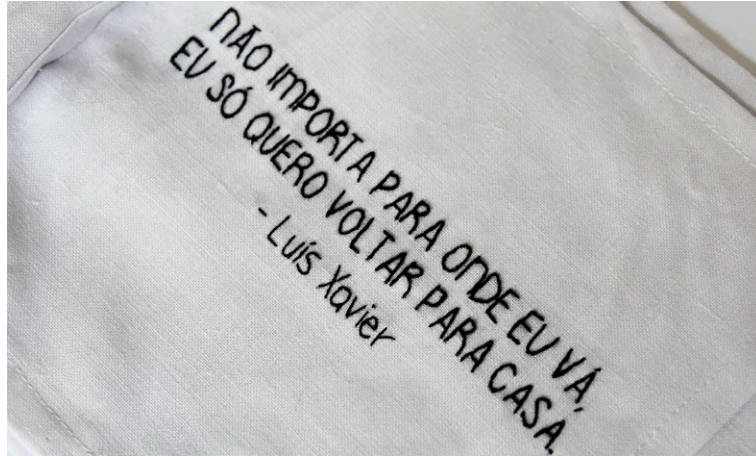 NÃO IMPORTA PARA ONDE EU VÁ,
EU SÓ QUERO VOLTAR PARA CASA.
- Luís Xavier